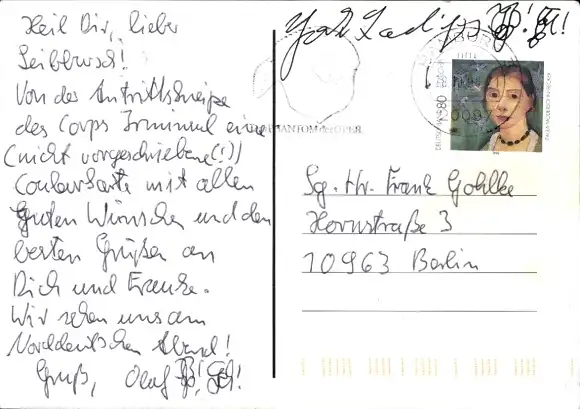 Heil Dir, lieber
Leibbursch!
Von der Antrittskneipe
des Corps Irminsul eine
(nicht vorgeschriebene(!))
Couleurkarte mit allen
guten Wünschen und den
besten Grüßen an
Dich und Frauke.
Wir sehen uns am
Norddeutschen Abend!
Gruß, Olaf
Sg. Hr. Frank Gohlke
Hornstraße 3
10963 Berlin
80
PAULA MODERSOHN-BECKER
PHANTOM DER OPER